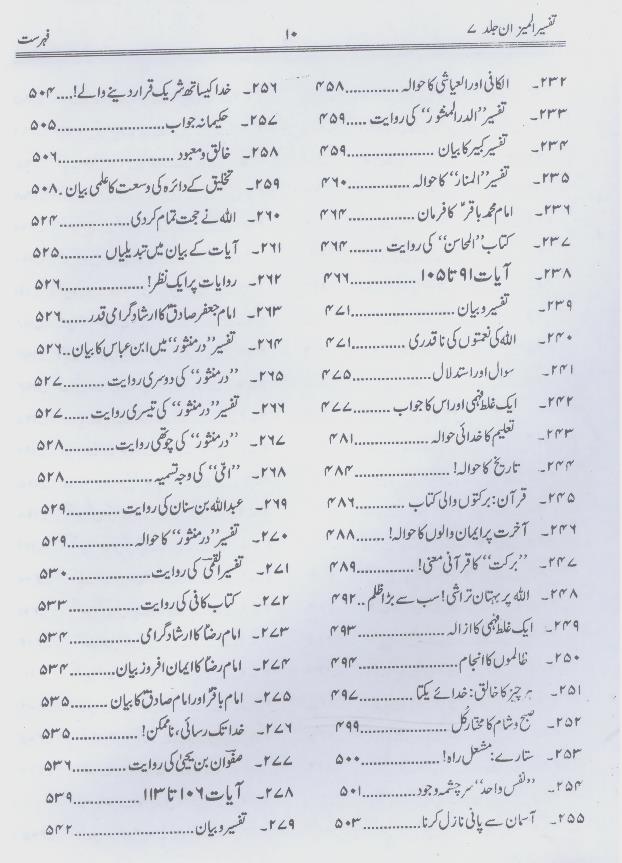 تفسیر المیزان جلد ۷
۱۰
فہرست
۲۳۲۔ الکافی اور العیاشی کا حوالہ ............ ۴۵۸
۲۳۳۔ تفسیر "الدر المنثور" کی روایت ...... ۴۵۹
۲۳۴۔ تفسیر کبیر کا بیان .................... ۴۵۹
۲۳۵۔ تفسیر "المنار" کا حوالہ ............... ۴۶۰
۲۳۶۔ امام محمد باقرؑ کا فرمان ............... ۴۶۴
۲۳۷۔ کتاب "المحاسن" کی روایت ........ ۴۶۴
۲۳۸۔ آیات ۹۱ تا ۱۰۵ .................. ۴۶۶
۲۳۹۔ تفسیر و بیان .......................... ۴۷۱
۲۴۰۔ اللہ کی نعمتوں کی ناقدری ............ ۴۷۱
۲۴۱۔ سوال اور استدلال ................... ۴۷۵
۲۴۲۔ ایک غلط فہمی اور اس کا جواب ....... ۴۷۷
۲۴۳۔ تعلیم کا خدائی حوالہ ................. ۴۸۱
۲۴۴۔ تاریخ کا حوالہ! ..................... ۴۸۴
۲۴۵۔ قرآن: برکتوں والی کتاب ............ ۴۸۶
۲۴۶۔ آخرت پر ایمان والوں کا حوالہ! ...... ۴۸۸
۲۴۷۔ "برکت" کا قرآنی معنی! ............. ۴۸۹
۲۴۸۔ اللہ پر بہتان تراشی! سب سے بڑا ظلم .. ۴۹۲
۲۴۹۔ ایک غلط فہمی کا ازالہ ................. ۴۹۳
۲۵۰۔ ظالموں کا انجام ..................... ۴۹۴
۲۵۱۔ ہر چیز کا خالق: خدائے یکتا ........... ۴۹۷
۲۵۲۔ صبح و شام کا مختارِ کل ................ ۴۹۹
۲۵۳۔ ستارے: مشعل راہ! ................ ۵۰۰
۲۵۴۔ "نفس واحد" سرچشمہ وجود .......... ۵۰۱
۲۵۵۔ آسمان سے پانی نازل کرنا ............. ۵۰۳
۲۵۶۔ خدا کیساتھ شریک قرار دینے والے! .... ۵۰۴
۲۵۷۔ حکیمانہ جواب ........................ ۵۰۵
۲۵۸۔ خالق و معبود ......................... ۵۰۶
۲۵۹۔ تخلیق کے دائرہ کی وسعت کا علمی بیان . ۵۰۸
۲۶۰۔ اللہ نے حجت تمام کر دی ............... ۵۲۴
۲۶۱۔ آیات کے بیان میں تبدیلیاں .......... ۵۲۵
۲۶۲۔ روایات پر ایک نظر! .................. ۵۲۶
۲۶۳۔ امام جعفر صادقؑ کا ارشاد گرامی قدر ...... ۵۲۶
۲۶۴۔ تفسیر "در منثور" میں ابن عباس کا بیان .. ۵۲۶
۲۶۵۔ "در منثور" کی دوسری روایت .......... ۵۲۷
۲۶۶۔ تفسیر "در منثور" کی تیسری روایت ..... ۵۲۷
۲۶۷۔ "در منثور" کی چوتھی روایت ............ ۵۲۸
۲۶۸۔ "امّی" کی وجہ تسمیہ .................... ۵۲۸
۲۶۹۔ عبداللہ بن سنان کی روایت ............. ۵۲۹
۲۷۰۔ تفسیر "در منثور" کا حوالہ .............. ۵۲۹
۲۷۱۔ تفسیر القمی کی روایت .................. ۵۳۰
۲۷۲۔ کتاب کافی کی روایت ................. ۵۳۳
۲۷۳۔ امام رضاؑ کا ارشاد گرامی ................ ۵۳۴
۲۷۴۔ امام رضاؑ کا ایمان افروز بیان ........... ۵۳۴
۲۷۵۔ امام باقرؑ اور امام صادقؑ کا بیان ......... ۵۳۵
۲۷۶۔ خدا تک رسائی، ناممکن! ................ ۵۳۵
۲۷۷۔ صفوان بن یحییٰ کی روایت ............. ۵۳۶
۲۷۸۔ آیات ۱۰۶ تا ۱۱۳ ................... ۵۳۹
۲۷۹۔ تفسیر و بیان ......................... ۵۴۲